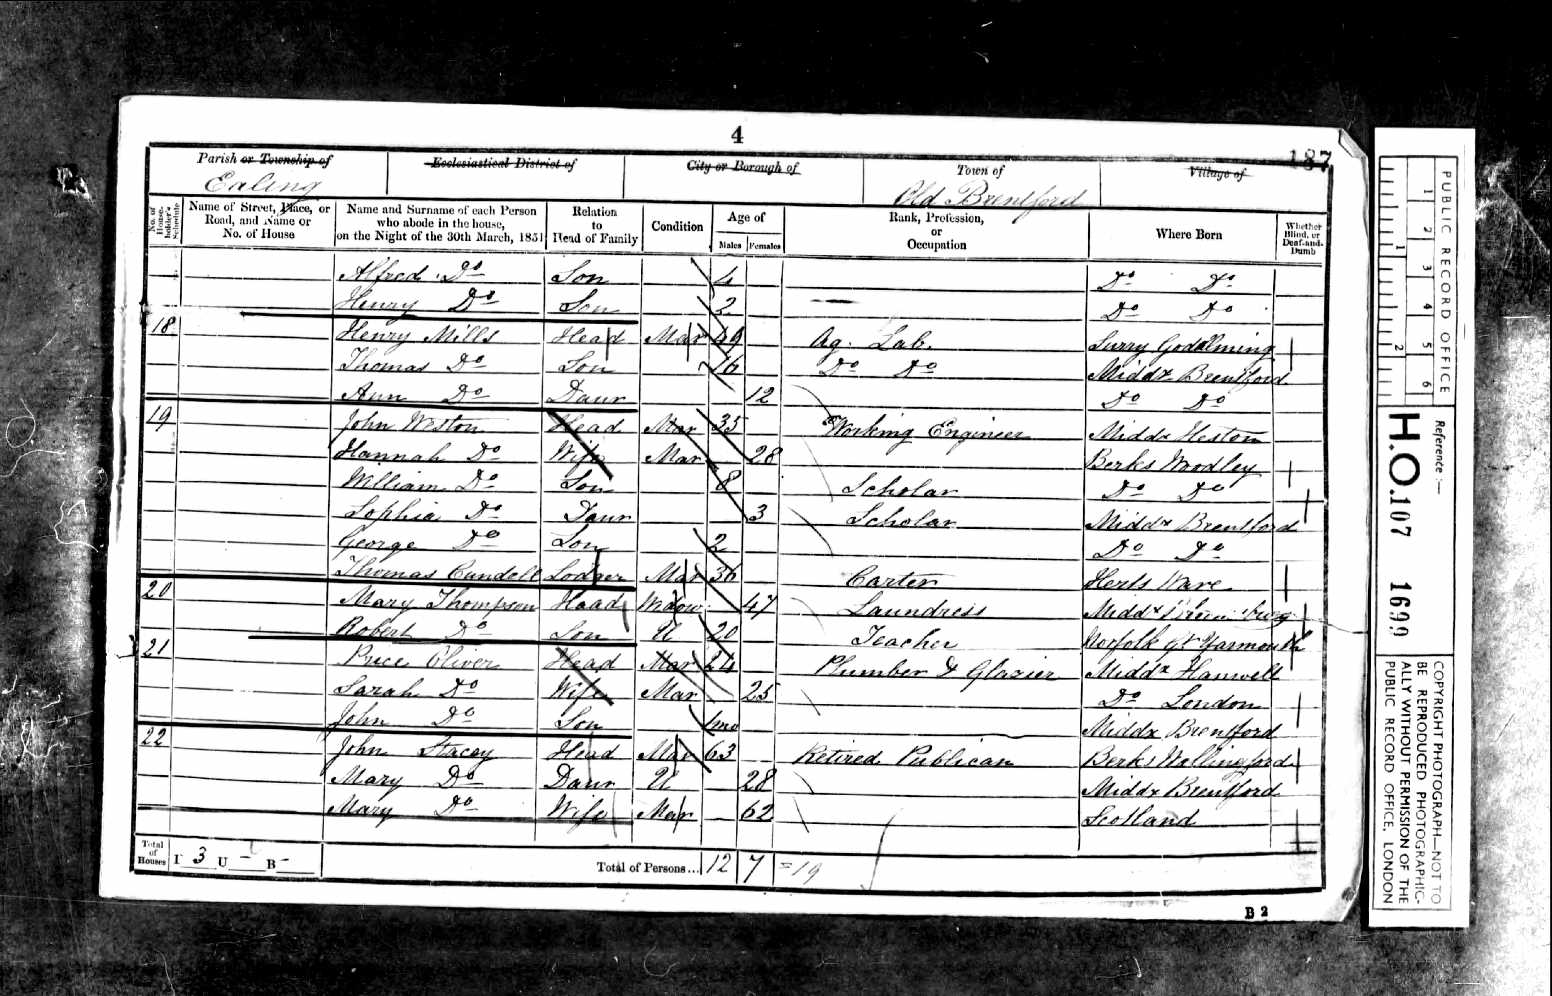 4
187
Parish or Township of
Ealing
Ecclesiastical District of
City or Borough of
Town of
Old Brentford
Village of
No. of House-holder's Schedule
Name of Street, Place, or Road, and Name or No. of House
Name and Surname of each Person who abode in the house, on the Night of the 30th March, 1851
Relation to Head of Family
Condition
Age of
Males Females
Rank, Profession, or Occupation
Where Born
Whether Blind, or Deaf-and-Dumb
Alfred Do Son 4 Do Do
Henry Do Son 2 Do Do
18 Henry Mills Head Mar 49 Ag. Lab. Surry Godalming
Thomas Do Son 16 Do Do Middx Brentford
Ann Do Daur 12 Do Do
19 John Weston Head Mar 35 Working Engineer Middx Heston
Hannah Do Wife Mar 28 Berks Woodley
William Do Son 8 Scholar Do Do
Sophia Do Daur 3 Scholar Middx Brentford
George Do Son 2 Do Do
Thomas Cundell Lodger Mar 36 Carter Herts Ware
20 Mary Thompson Head Widow 47 Laundress Middx
Robert Do Son U 20 Teacher Norfolk Gt Yarmouth
21 Price Oliver Head Mar 24 Plumber & Glazier Middx Hanwell
Sarah Do Wife Mar 25 Do London
John Do Son 1mo Middx Brentford
22 John Stacey Head Mar 63 Retired Publican Berks Wallingford
Mary Do Daur U 28 Middx Brentford
Mary Do Wife Mar 62 Scotland
Total of Houses I 3 U - B -
Total of Persons... 12 7 =19
B 2
PUBLIC RECORD OFFICE
1 2 3 4 5 6
1 2
Reference :—
H.O. 107 1699
COPYRIGHT PHOTOGRAPH—NOT TO
BE REPRODUCED PHOTOGRAPHIC-
ALLY WITHOUT PERMISSION OF THE
PUBLIC RECORD OFFICE, LONDON